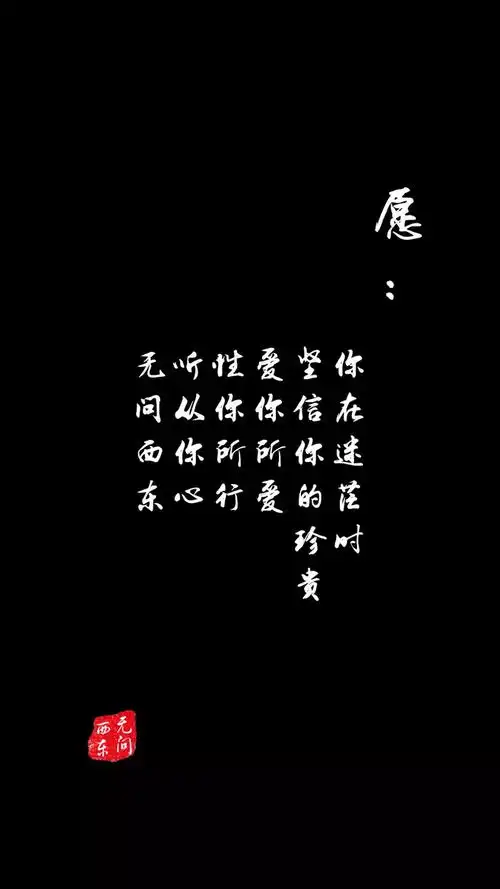 愿：
你在迷茫时
坚信你的珍贵
爱你所爱
性你所行
听从你心
无问西东
无问
西东